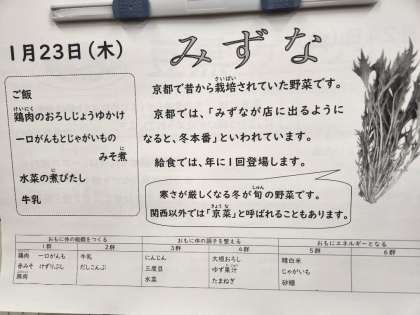 1月23日(木)
みずな
ご飯
けいにく
鶏肉のおろしじょうゆかけ
一口がんもとじゃがいもの
に
みそ煮
に
水菜の煮びたし
牛乳
さいばい
京都で昔から栽培されていた野菜です。
京都では、「みずなが店に出るように
なると、冬本番」といわれています。
給食では、年に1回登場します。
しゅん
寒さが厳しくなる冬が旬の野菜です。
きょうな
関西以外では「京菜」と呼ばれることもあります。
おもに体の組織をつくる おもに体の調子を整える おもにエネルギーとなる
1群 2群 3群 4群 5群 6群
鶏肉 一口がんも 牛乳 にんじん 大根おろし 精白米
赤みそ けずりぶし だしこんぶ 三度豆 ゆず果汁 じゃがいも
豚肉 水菜 たまねぎ 砂糖